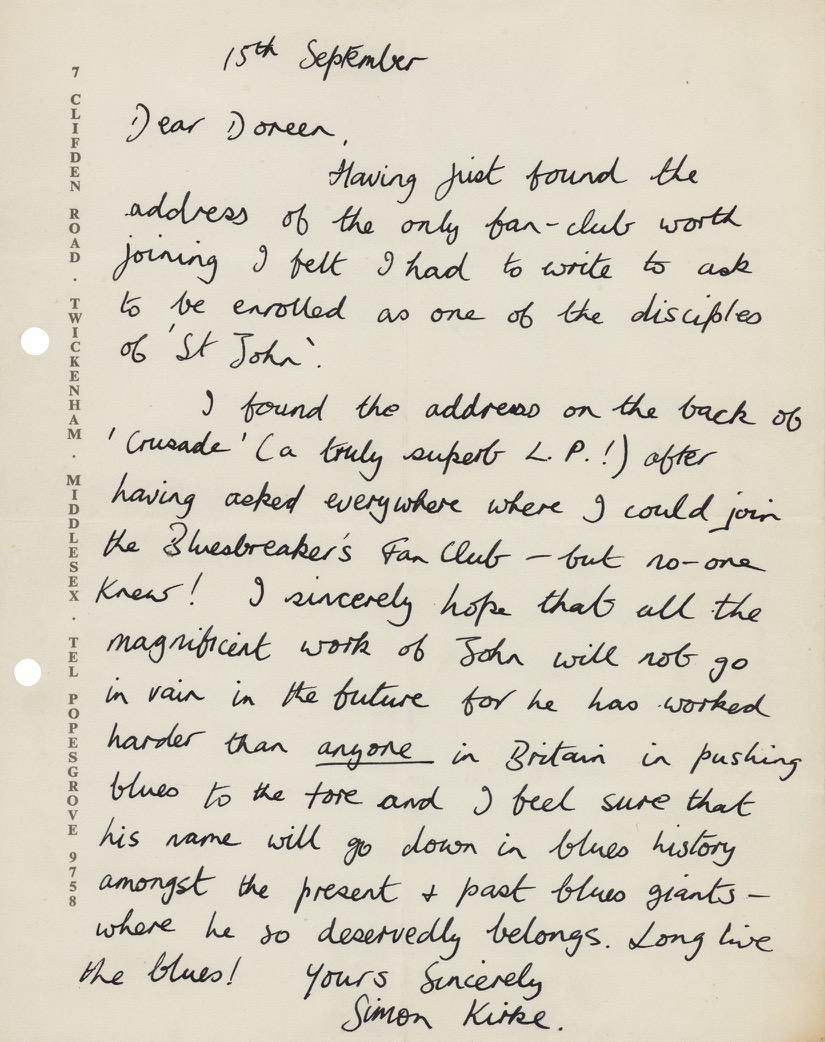 7 CLIFDEN ROAD · TWICKENHAM · MIDDLESEX · TEL POPESGROVE 9758
15th September
Dear Doreen,
Having just found the
address of the only fan-club worth
joining I felt I had to write to ask
to be enrolled as one of the disciples
of 'St John'.
I found the address on the back of
'Crusade' (a truly superb L.P.!) after
having asked everywhere where I could join
the Bluesbreaker's Fan Club – but no-one
knew! I sincerely hope that all the
magnificent work of John will not go
in vain in the future for he has worked
harder than anyone in Britain in pushing
blues to the fore and I feel sure that
his name will go down in blues history
amongst the present + past blues giants –
where he so deservedly belongs. Long live
the blues! Yours Sincerely
Simon Kirke.